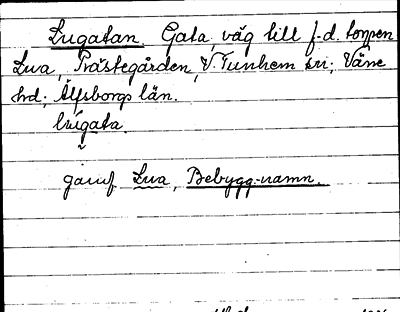 Lugatan. Gata, väg till f.d. torpen
Lua, Prästegården, V. Tunhem sn; Väne
hd; Älfsborgs län.
lu̇gata.
jämf Lua, Bebygg-namn.